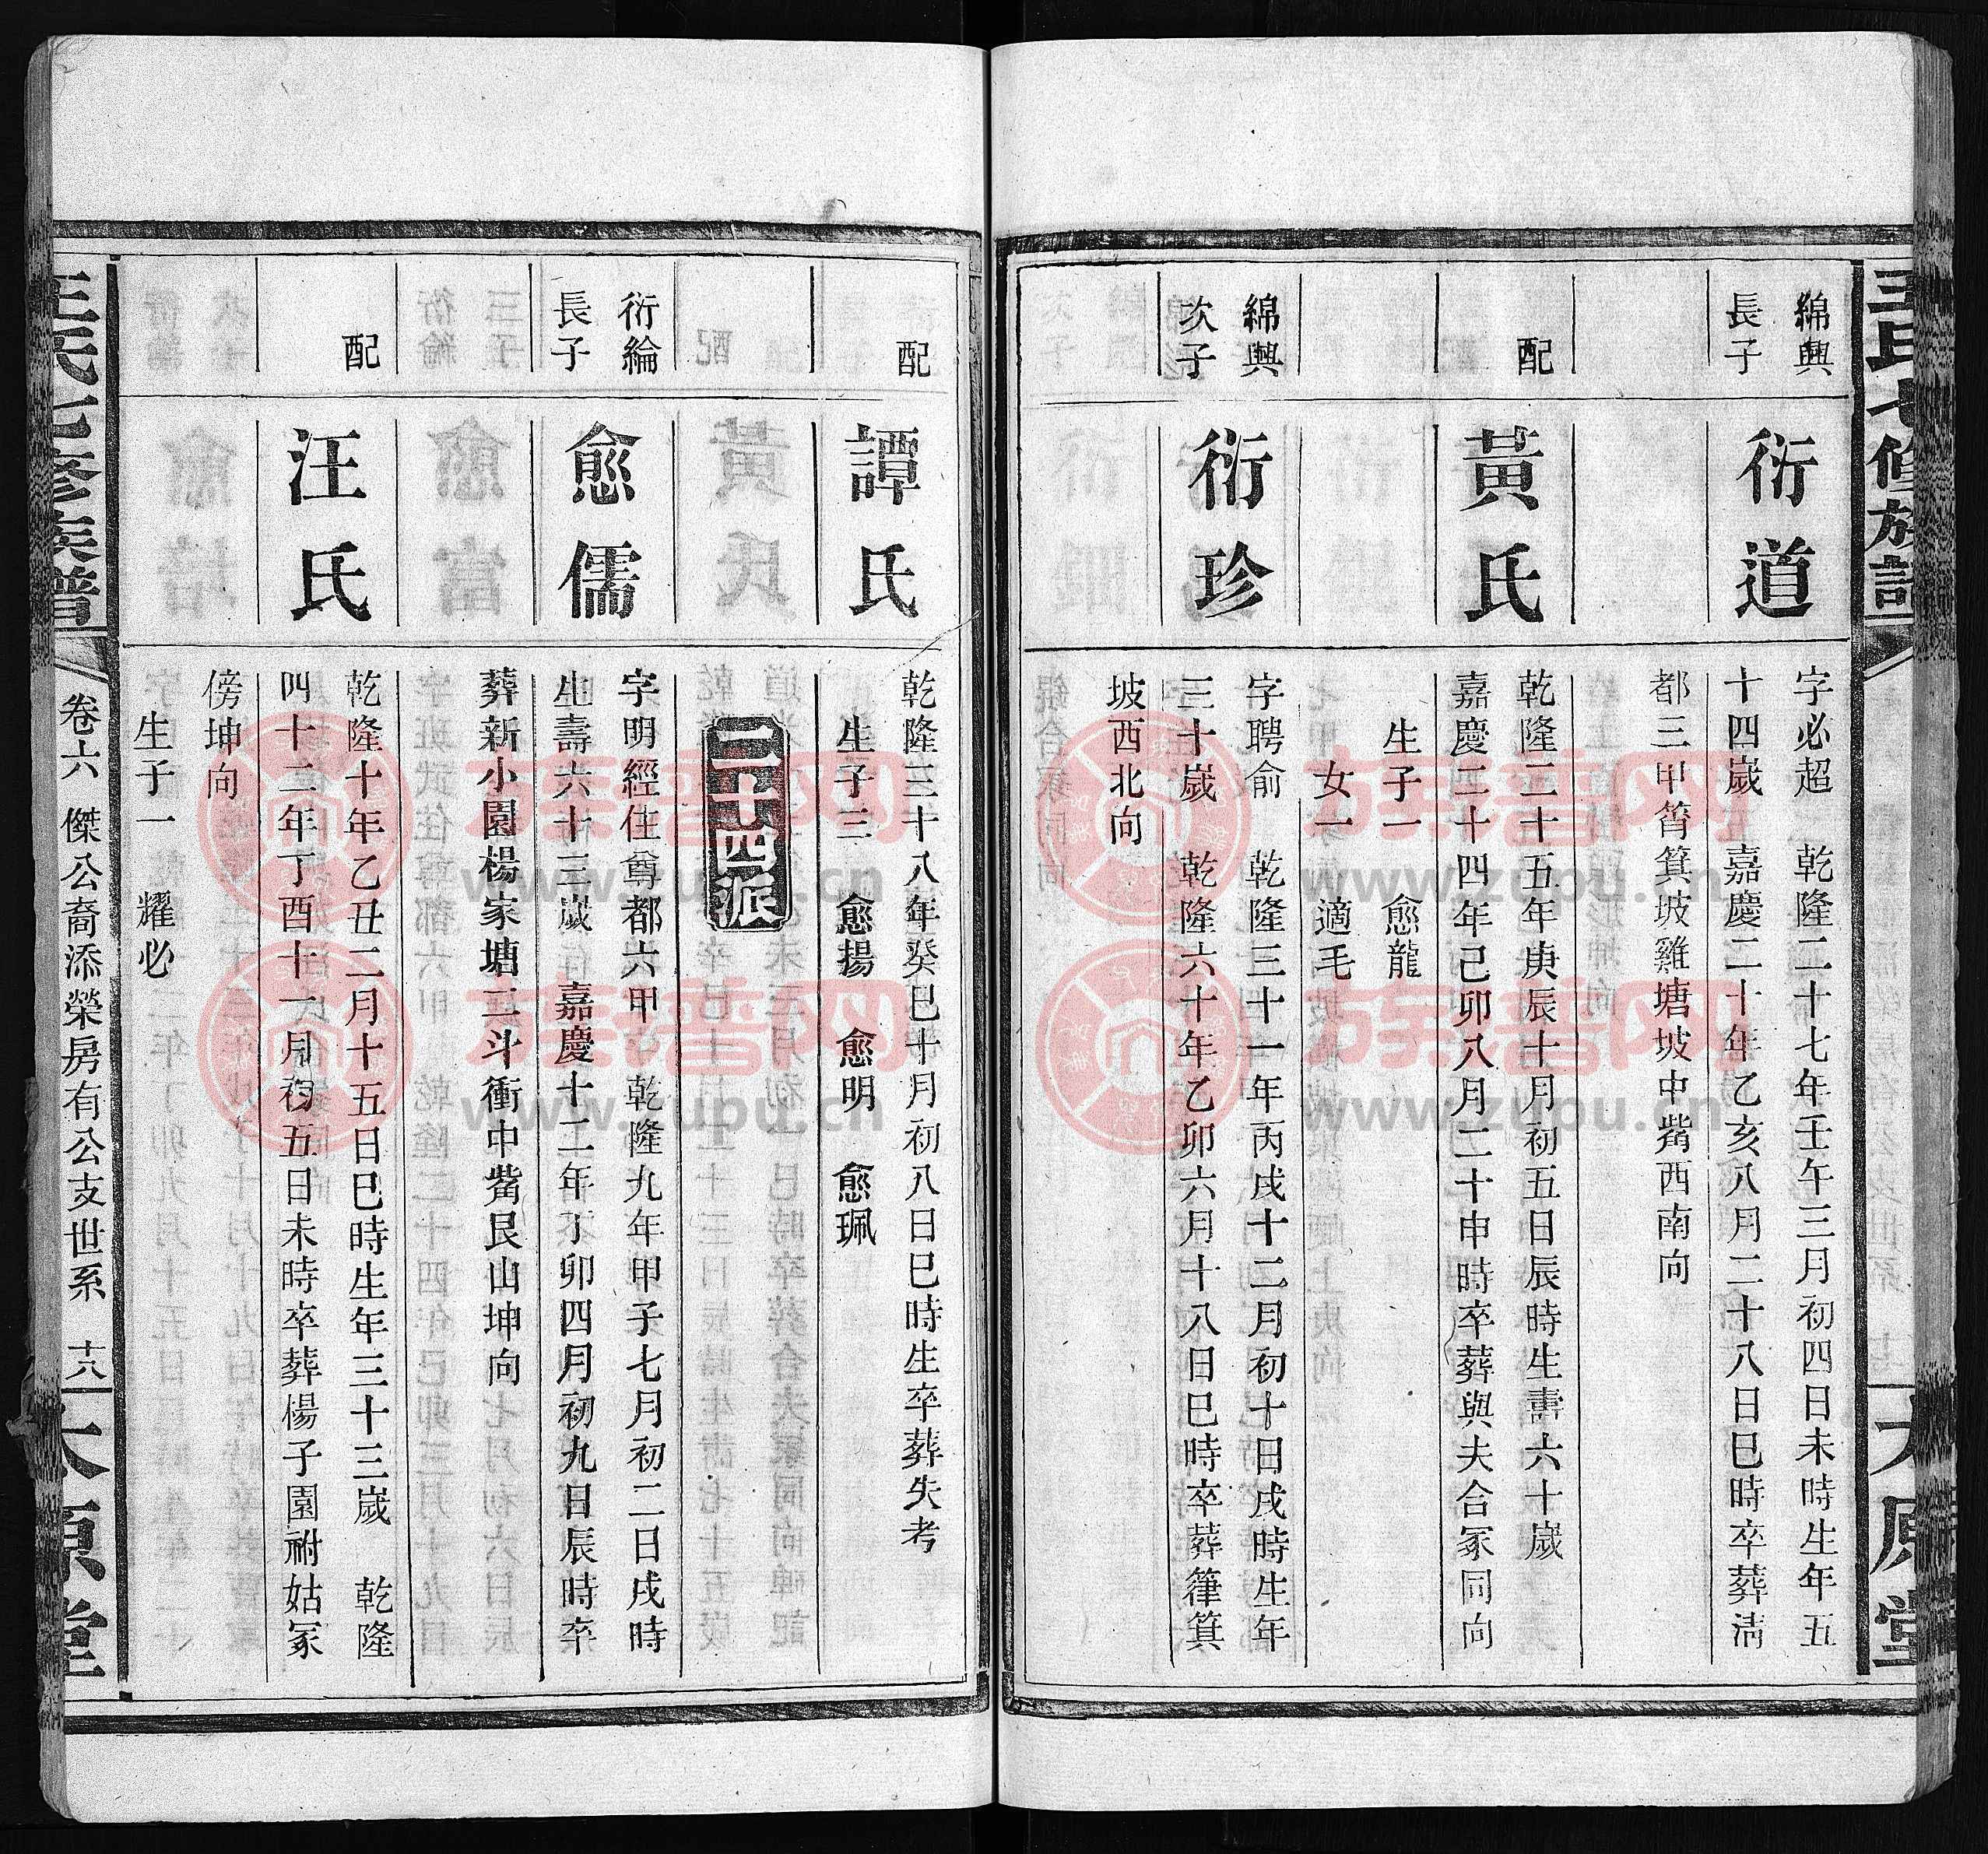 王氏七修族譜
太原堂
綿興
長子
衍道
字必超 乾隆二十七年壬午三月初四日未時生年五
十四歲 嘉慶二十年乙亥八月二十八日巳時卒葬清
都三甲筲箕坡雞塘坡中嘴西南向
配
黃氏
乾隆二十五年庚辰十月初五日辰時生壽六十歲
嘉慶二十四年己卯八月二十申時卒葬與夫合冢同向
生子一 愈龍
女一 適毛
綿興
次子
衍珍
字聘俞 乾隆三十一年丙戌十二月初十日戌時生年
三十歲 乾隆六十年乙卯六月十八日巳時卒葬箻箕
坡西北向
配
譚氏
乾隆三十八年癸巳十月初八日巳時生卒葬失考
生子三 愈揚 愈明 愈珮
二十四派
衍綸
長子
愈儒
字明經住尊都六甲 乾隆九年甲子七月初二日戌時
生壽六十三歲 嘉慶十二年丁卯四月初九日辰時卒
葬新小園楊家塘二斗衝中嘴艮山坤向
配
汪氏
乾隆十年乙丑二月十五日巳時生年三十三歲 乾隆
四十二年丁酉十一月初五日未時卒葬楊子園祔姑冢
傍坤向
生子一 耀必
王氏七修族譜
卷六 傑公裔添榮房有公支世系 十八
太原堂
族譜网
www.zupu.cn
族譜网
www.zupu.cn
族譜网
www.zupu.cn
族譜网
www.zupu.cn